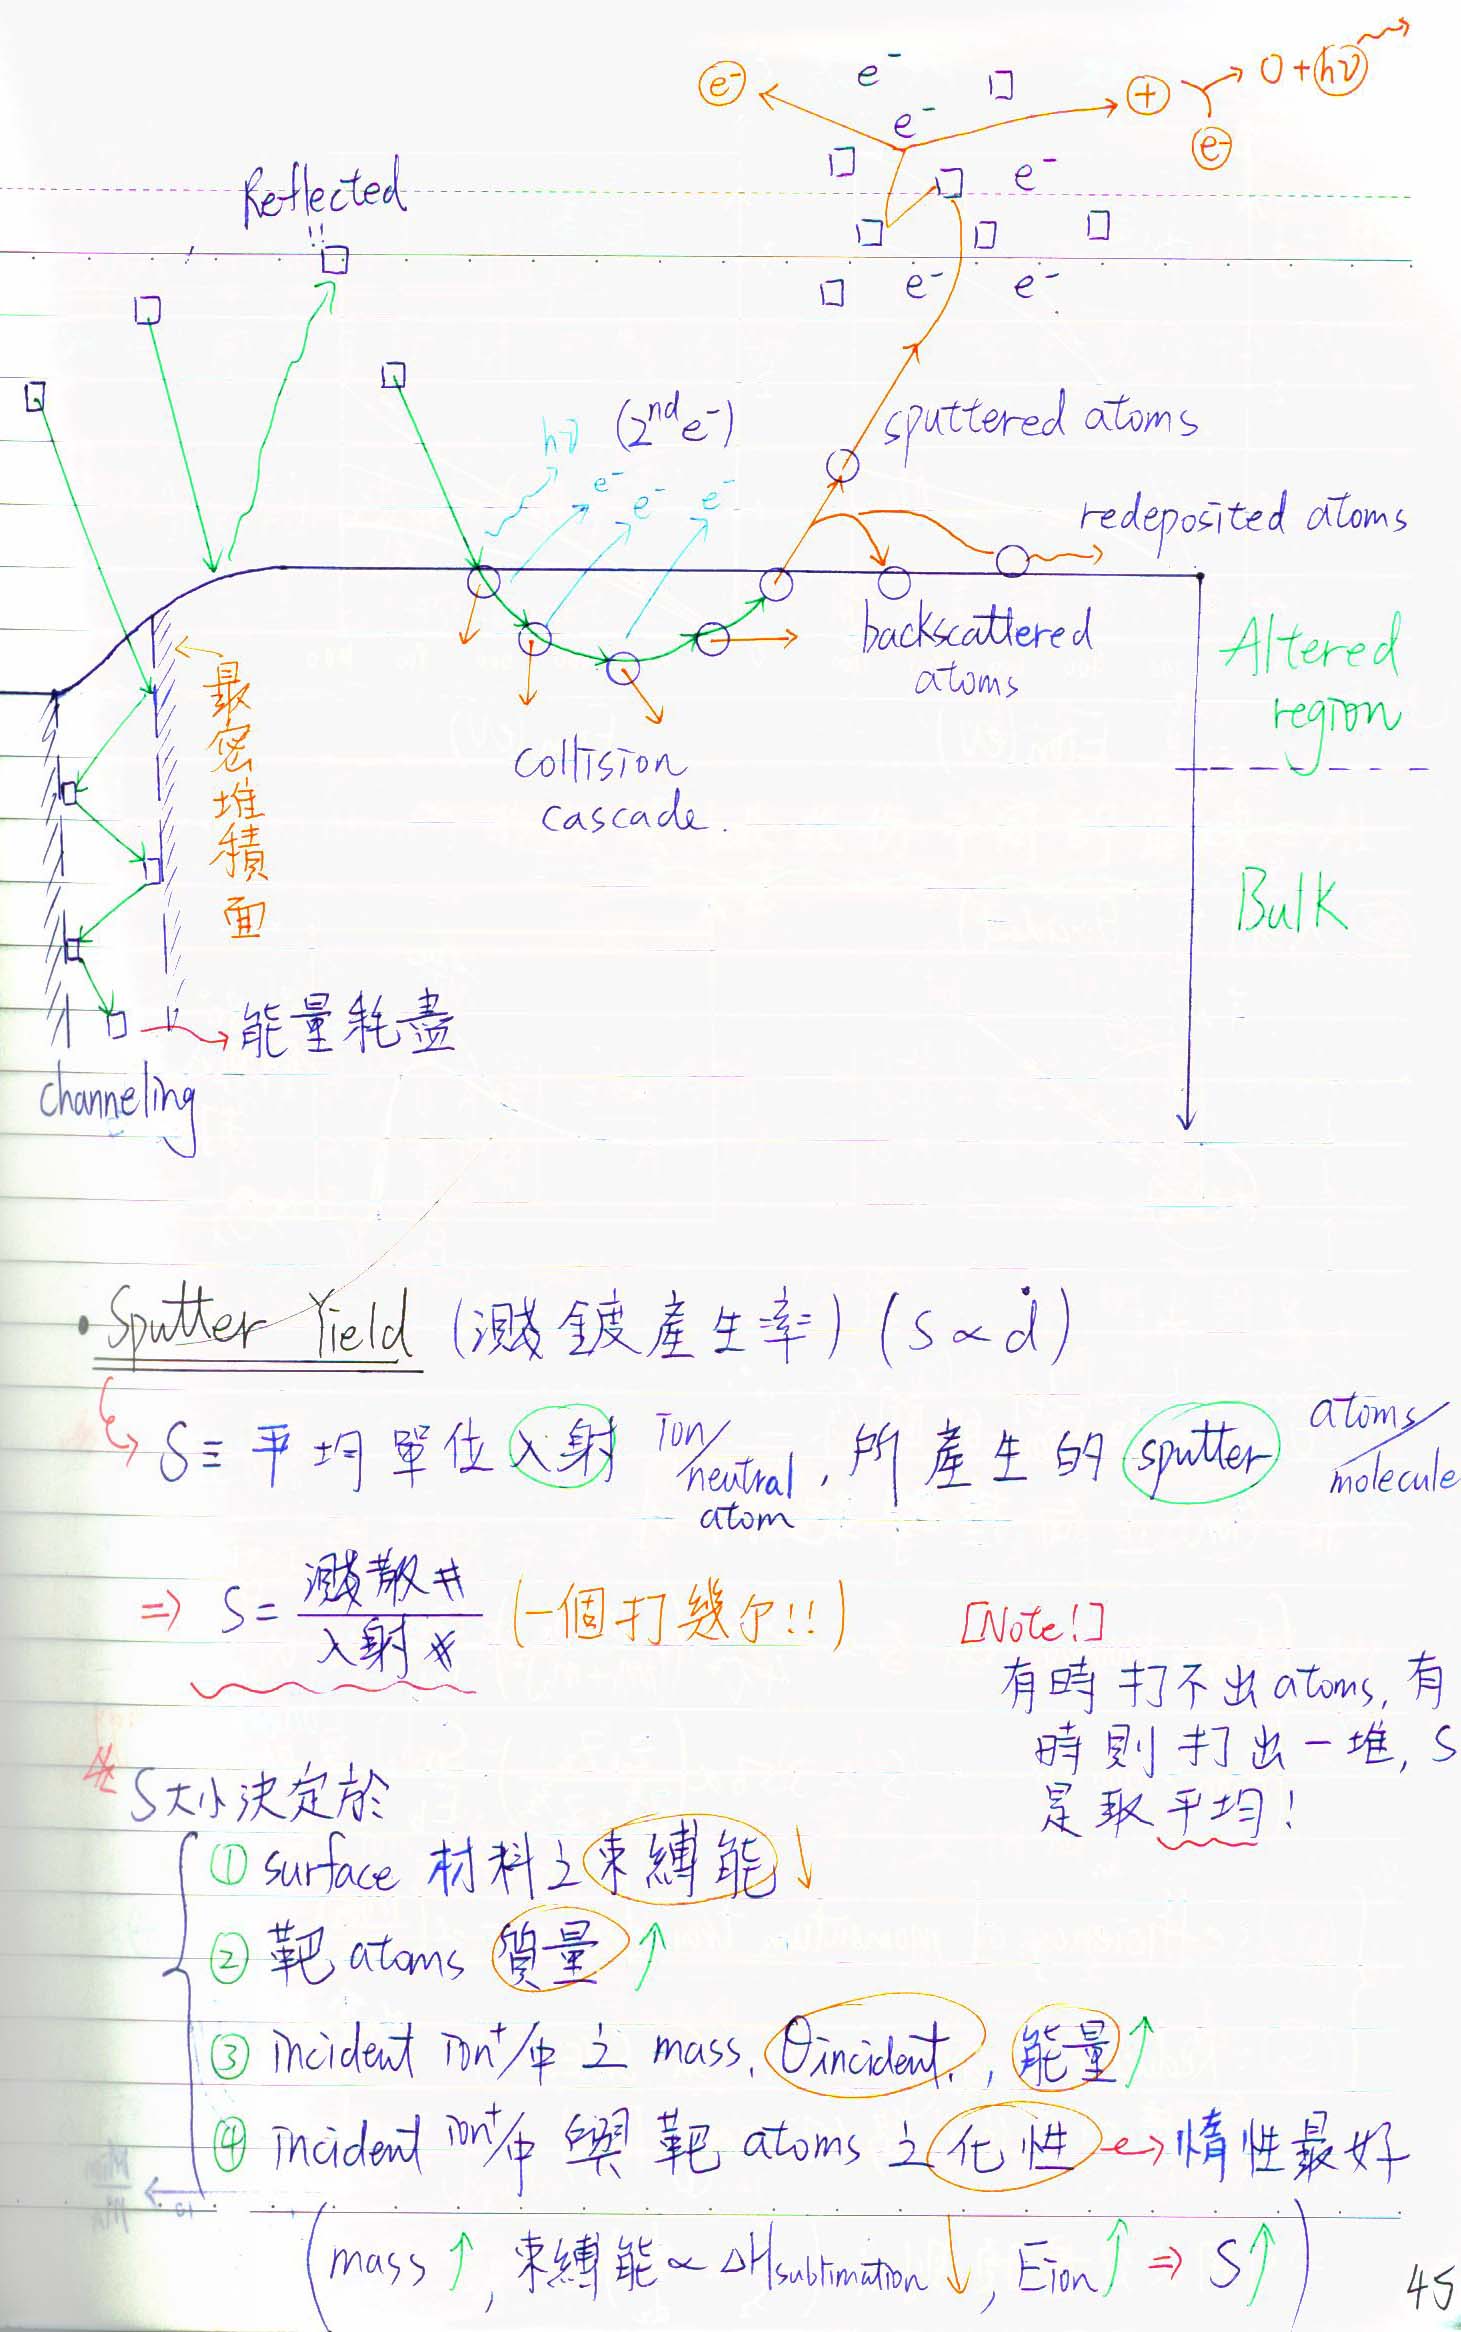 e⁻ e⁻ □ + → O + hν
e⁻ e⁻
□ □ e⁻
Reflected
!! □ □ □ □
□ e⁻ e⁻
hν (2nd e⁻)
e⁻ e⁻ e⁻
sputtered atoms
redeposited atoms
backscattered
atoms
Altered
region
最密堆積面
collision
cascade.
Bulk
能量耗盡
channeling
• Sputter Yield (濺鍍產生率) (S ∝ ḋ)
S ≡ 平均單位入射 ion/neutral atom, 所產生的 sputter atoms/molecule
⇒ S = 濺散# / 入射# (一個打幾个!!)
[Note!]
有時打不出atoms, 有
時則打出一堆, S
是取平均!
S大小決定於
① surface 材料之束縛能 ↓
② 靶 atoms 質量 ↑
③ incident ion⁺/中 之 mass, θincident, 能量 ↑
④ incident ion⁺/中 與靶 atoms 之化性 → 惰性最好
(mass ↑, 束縛能 ∝ ΔHsublimation ↓, Eion ↑ ⇒ S ↑)
45